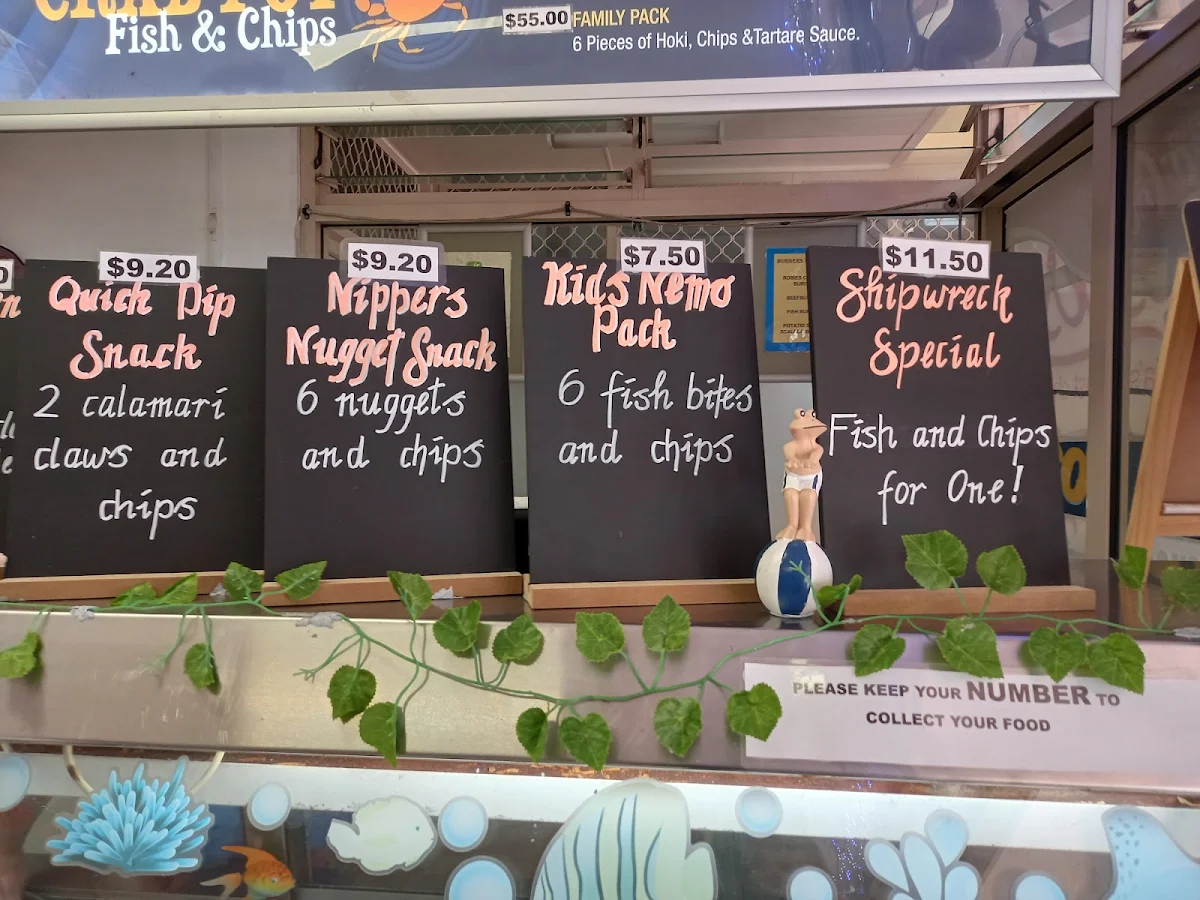 CRAB POT
Fish & Chips
$55.00 FAMILY PACK
6 Pieces of Hoki, Chips &Tartare Sauce.
$9.20
Quick Dip
Snack
2 calamari
claws and
chips
$9.20
Nippers
Nugget Snack
6 nuggets
and chips
$7.50
Kids Nemo
Pack
6 fish bites
and chips
$11.50
Shipwreck
Special
Fish and Chips
for One!
PLEASE KEEP YOUR NUMBER TO
COLLECT YOUR FOOD